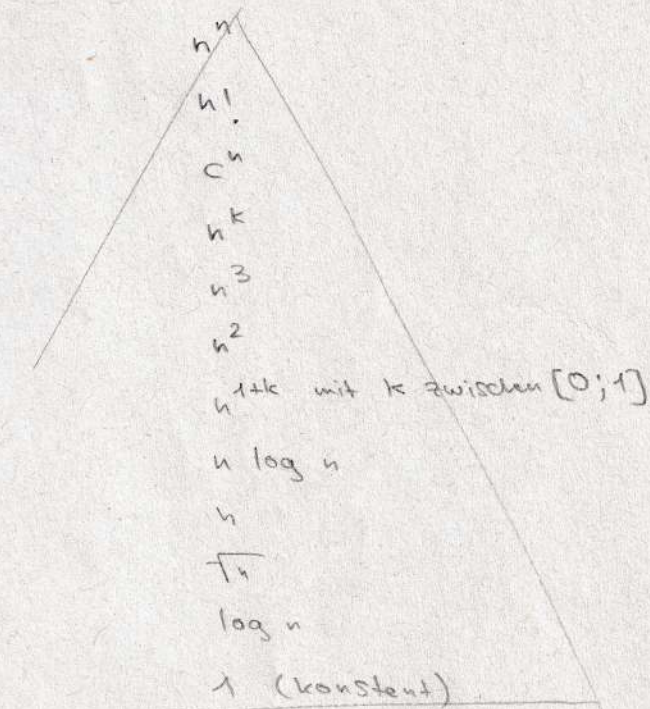 nⁿ
n!
cⁿ
nᵏ
n³
n²
n¹⁺ᵏ mit k zwischen [0;1]
n log n
n
√n
log n
1 (konstant)